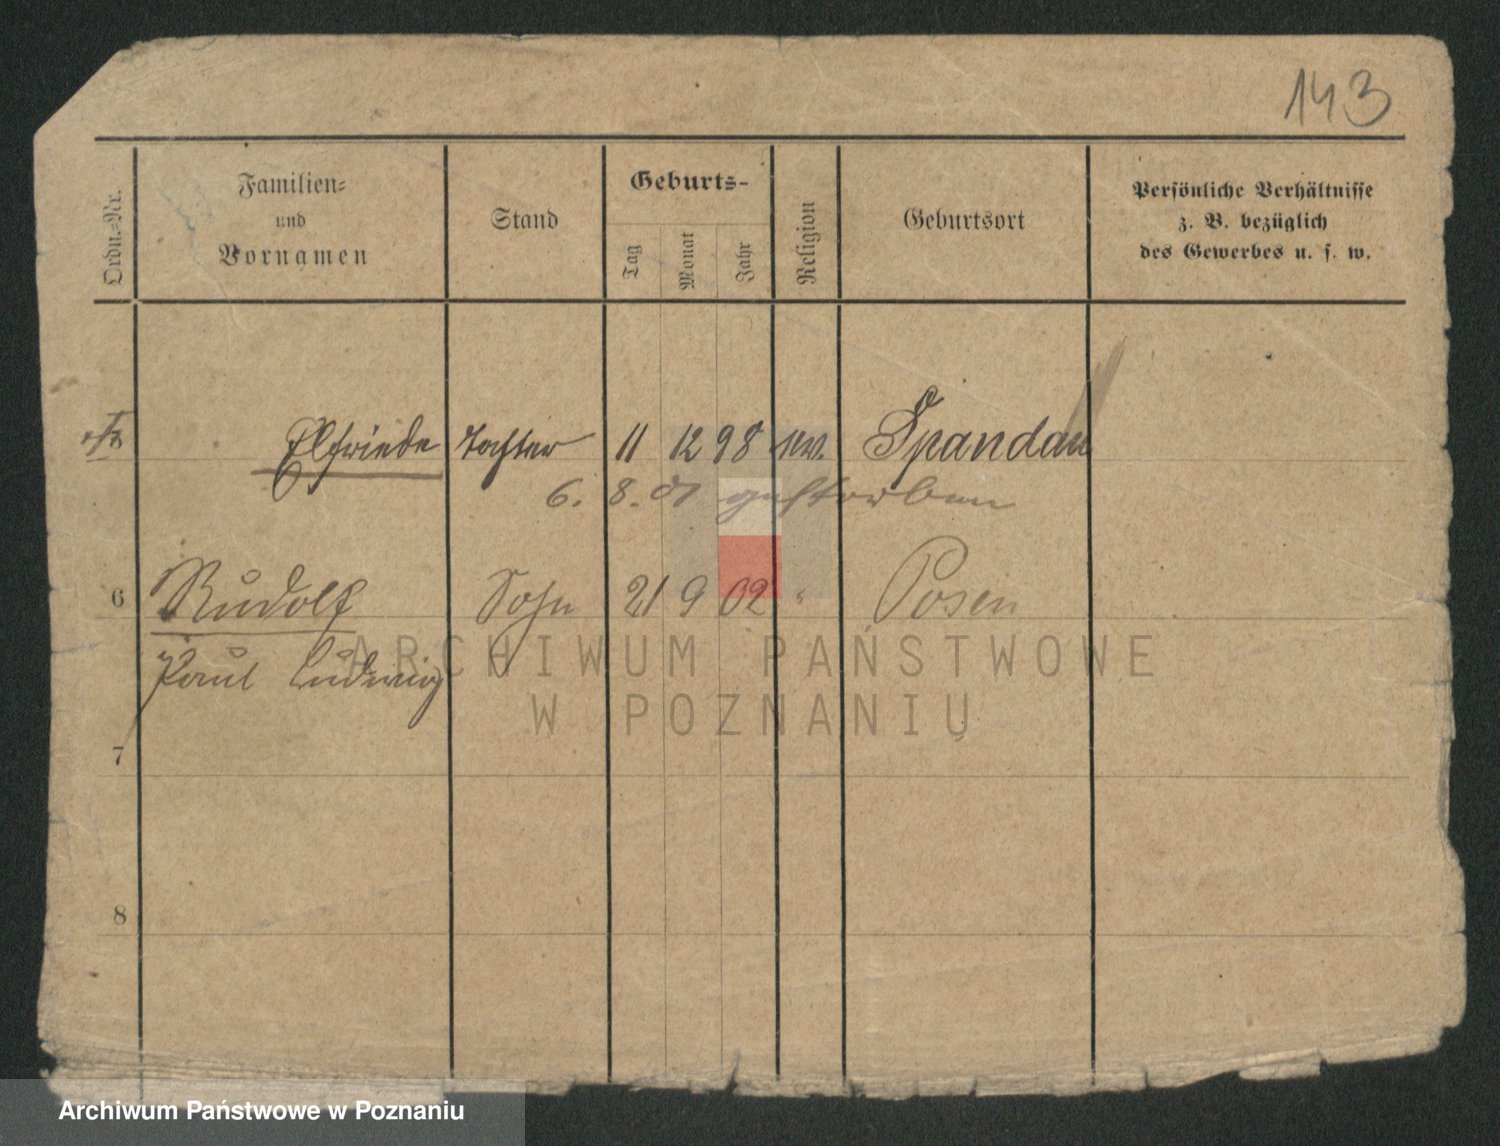 143
Ordn.-Nr.
Familien-
und
Vornamen
Stand
Geburts-
Tag
Monat
Jahr
Religion
Geburtsort
Persönliche Verhältnisse
z. B. bezüglich
des Gewerbes u. s. w.
Elfriede Tochter 11 12 98 ev. Spandau
6. 8. 01 gestorben
6 Rudolf Sohn 21 9 02 " Posen
Paul Ludwig
ARCHIWUM PAŃSTWOWE
W POZNANIU
7
8
Archiwum Państwowe w Poznaniu